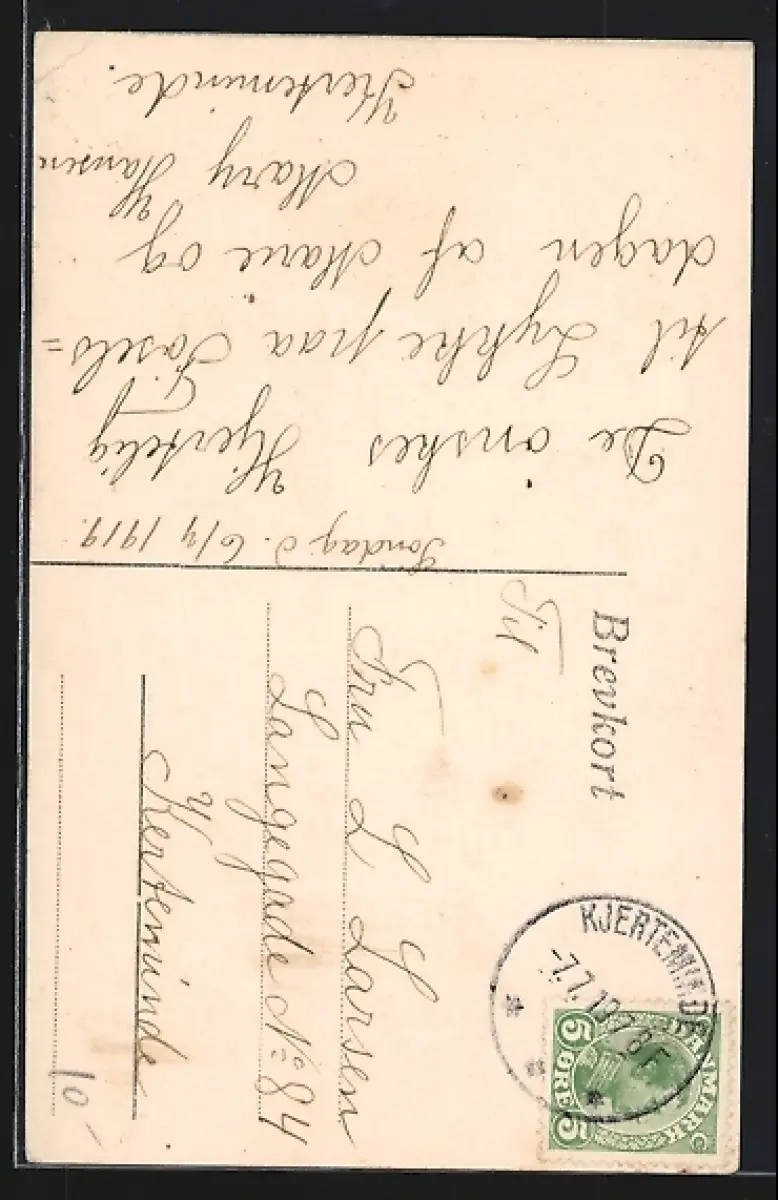 Søndag. d. 6/7 1919.
De ønskes Hjertelig
til Lykke paa Fösels=
dagen af Marie og
Mary Hansen
Kjerteminde.
Brevkort
Til
Fru L Larsen
Langegade No 84
Kerteminde
10-
KJERTEMINDE
7.7.19. 7-8 F
DANMARK
5 ØRE 5